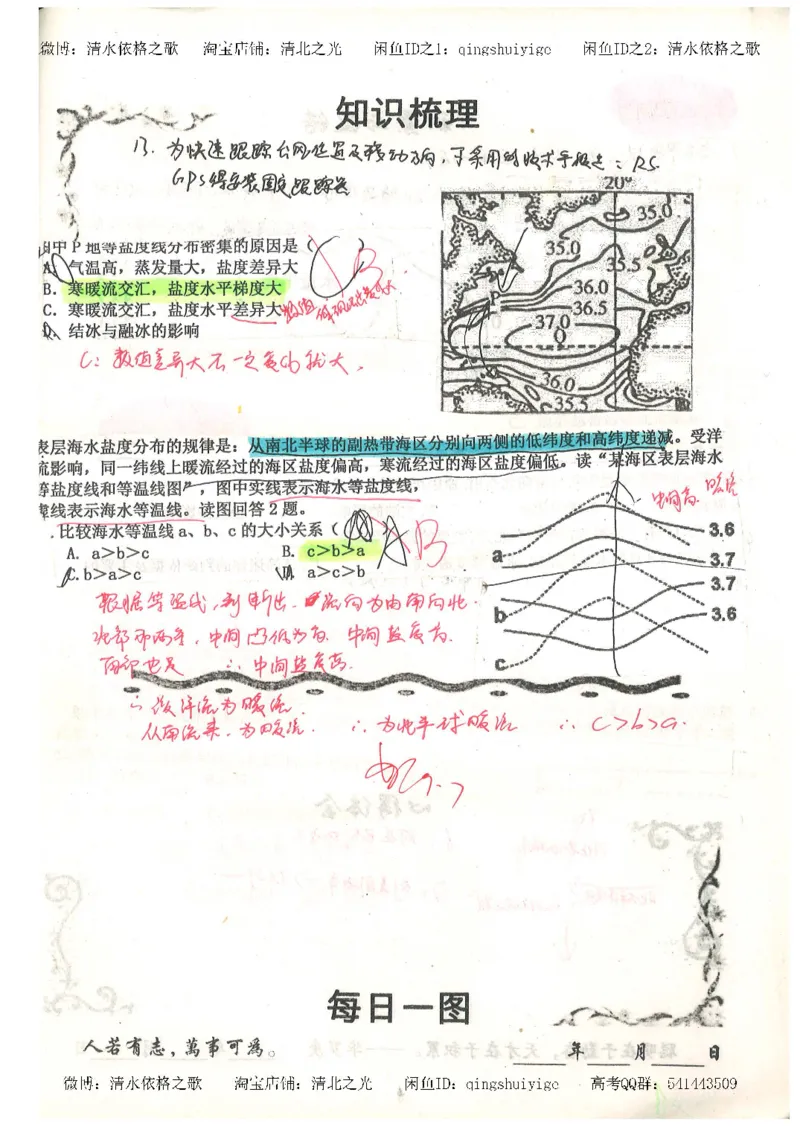 微博：清水依格之歌 淘宝店铺：清北之光 闲鱼ID之1：qingshuiyige 闲鱼ID之2：清水依格之歌
知识梳理
13. 为快速跟踪台风位置及移动方向，可采用的技术手段是：RS.
GPS得安装固定跟踪器
20°
35.0
35.0
35.5
36.0
P
36.5
37.0
36.0
35.5
中P地等盐度线分布密集的原因是（ ）B
A. 气温高，蒸发量大，盐度差异大
B. 寒暖流交汇，盐度水平梯度大
C. 寒暖流交汇，盐度水平差异大 数值
D. 结冰与融冰的影响
C：数值差异大不一定
表层海水盐度分布的规律是：从南北半球的副热带海区分别向两侧的低纬度和高纬度递减。受洋
流影响，同一纬线上暖流经过的海区盐度偏高，寒流经过的海区盐度偏低。读“某海区表层海水
等盐度线和等温线图”，图中实线表示海水等盐度线，
虚线表示海水等温线。读图回答2题。
中间高 暖流
.比较海水等温线a、b、c的大小关系（ B
A. a>b>c B. c>b>a
C.b>a>c D. a>c>b
a 3.6
3.7
3.7
b 3.6
c
根据等温线，判断出 流向为由南向北.
中间盐度高.
南部也是 ∴ 中间盐度高.
∴ 该洋流为暖流.
从南流来，为暖流. ∴ 为北半球暖流 ∴ c>b>a.
每日一图
人若有志，萬事可為。 年 月 日
微博：清水依格之歌 淘宝店铺：清北之光 闲鱼ID：qingshuiyige 高考QQ群：541443509